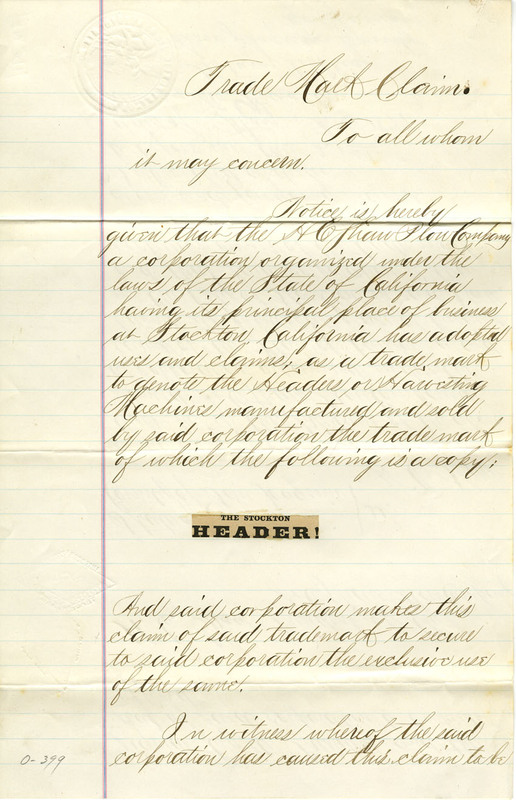 Trade Mark Claim.
To all whom
it may concern.
Notice is hereby
given that the H C Shaw Plow Company
a corporation organized under the
laws of the State of California
having its principal place of business
at Stockton, California has adopted
uses and claims, as a trade mark
to denote the Headers or Harvesting
Machines manufactured and sold
by said corporation the trade mark
of which the following is a copy:
THE STOCKTON
HEADER!
And said corporation makes this
claim of said trademark to secure
to said corporation the exclusive use
of the same.
In witness whereof the said
corporation has caused this claim to be
0-399